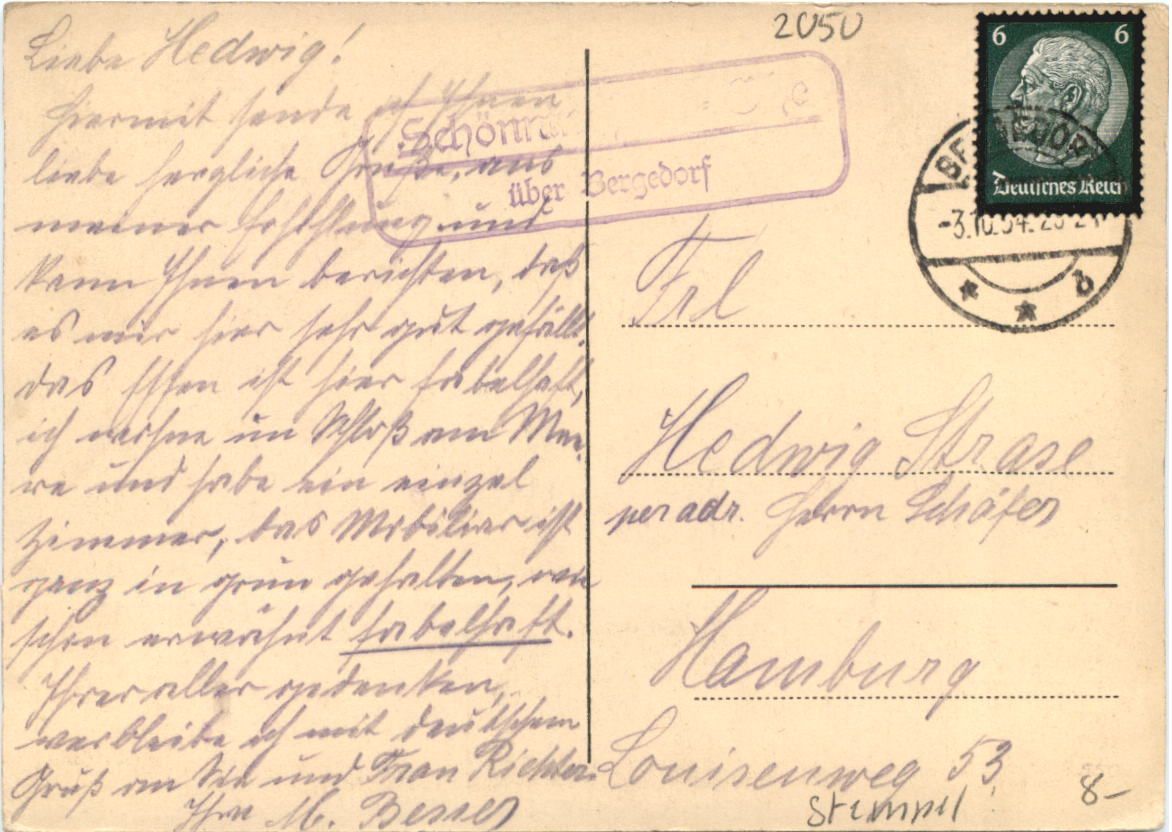 2050
6 6
Deutsches Reich
-3.10.34. 20-21
Schönni
über Bergedorf
Liebe Hedwig!
Hiermit sende ich Ihnen
liebe herzliche Grüße, aus
meiner Erhohlung und
kann Ihnen berichten, daß
es mir hier sehr gut gefällt.
das Essen ist hier fabelhaft,
ich wohne im Schloß am Mee-
re und habe ein einzel
Zimmer, das Mobiliar ist
ganz in grün gehalten, wie
schon erwähnt fabelhaft.
Ihrer aller gedenken,
verbleibe ich mit deutschem
Gruß an Sie und Frau Richter.
Ihre M. Besser
Frl
Hedwig Strase
per adr. Herrn Schäfer
Hamburg
Louisenweg 53
Stempel!
8-